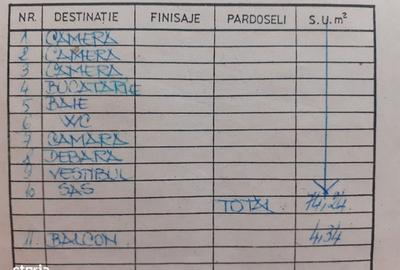 NR. DESTINAȚIE FINISAJE PARDOSELI S.U. m²
1 CAMERA
2 CAMERA
3 CAMERA
4 BUCATARIE
5 BAIE
6 WC
7 CAMARA
8 DEBARA
9 VESTIBUL
10 SAS
TOTAL 74,24
11 BALCON 4,34